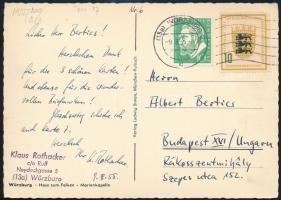 Nr. 6
Lieber Herr Bertics!
Herzlichen Dank
für die 3 schönen Karten!
und ebenso für die wunder-
vollen Briefmarken!
Herzlich
Ihr K. Rothacker.
9.8.55.
Klaus Rothacker
c/o Ruff
Neydeckgasse 5
(13a) Würzburg
Würzburg - Haus zum Falken - Marienkapelle
10
Herrn
Albert Bertics
Budapest XVI/Ungarn
Rákosszentmihály
Szepes utca 152.